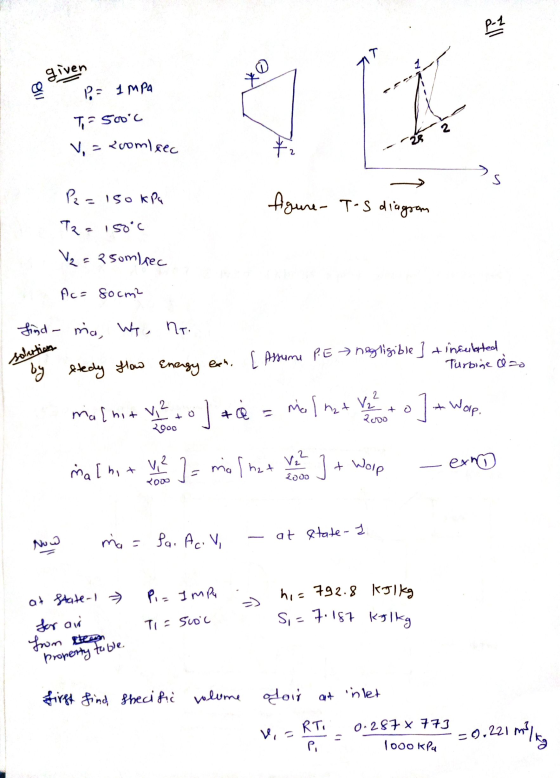 P-1
Q given
P1 = 1 MPa
T1 = 500°C
V1 = 200m/sec
P2 = 150 KPa
T2 = 150°C
V2 = 250m/sec
Ac = 80cm²
1
2
T
1
2s
2
S
figure - T-S diagram
find - ṁa, WT, ηT.
solution
by stedy flow Energy exn. [Assume P.E → negligible] + insulated Turbine Q̇=0
ṁa [h1 + V1²/2000 + 0] + Q̇ = ṁa [h2 + V2²/2000 + 0] + Wo/p.
ṁa [h1 + V1²/2000] = ṁa [h2 + V2²/2000] + Wo/p — exn ①
Now ṁa = ρa. Ac. V1 — at state-1
at state-1 ⇒ P1 = 1 MPa ⇒ h1 = 792.8 KJ/kg
for air T1 = 500°C S1 = 7.187 KJ/kg
from property table.
first find specific volume of air at inlet
v1 = RT1/P1 = 0.287 x 773/1000 KPa = 0.221 m³/kg